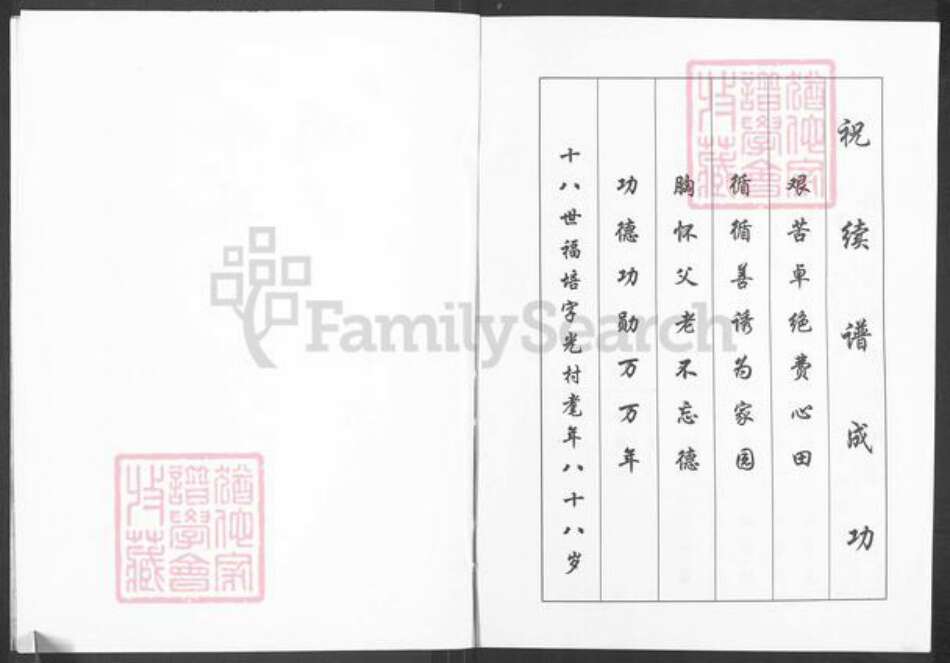 祝续谱成功
艰苦卓绝费心田
循循善诱为家园
胸怀父老不忘德
功德功勋万万年
十八世福培字光村耄年八十八岁
猶他家
譜學會
收藏
猶他家
譜學會
收藏
FamilySearch